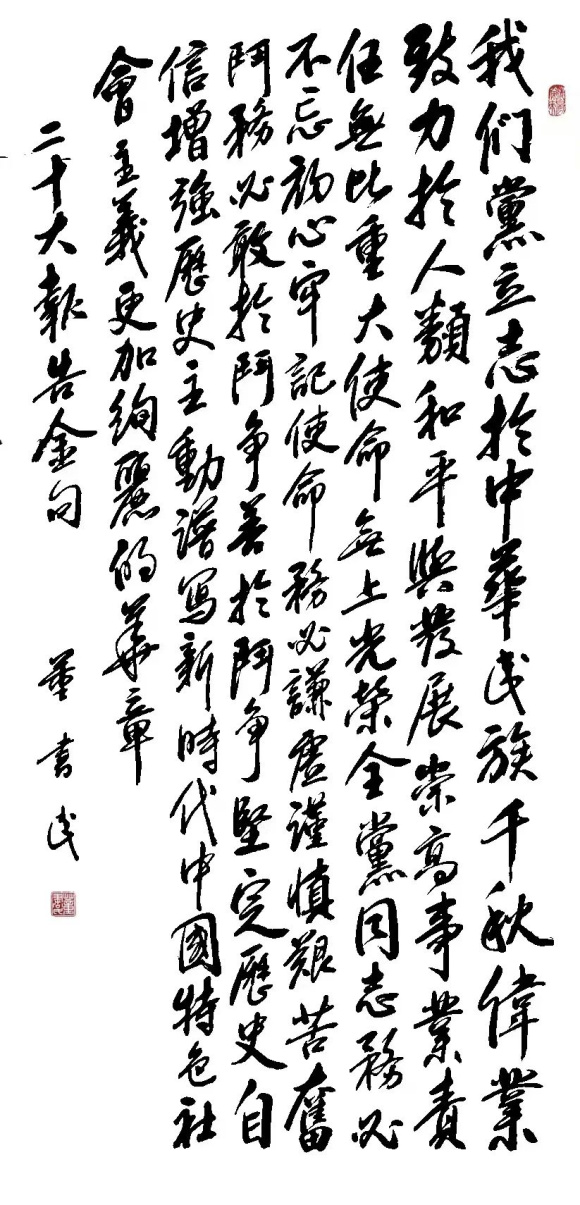 我們黨立志於中華民族千秋偉業
致力於人類和平與發展崇高事業責
任無比重大使命無上光榮全黨同志務必
不忘初心牢記使命務必謙虛謹慎艱苦奮
鬥務必敢於鬥爭善於鬥爭堅定歷史自
信增強歷史主動譜寫新時代中國特色社
會主義更加絢麗的華章
二十大報告金句
董書民